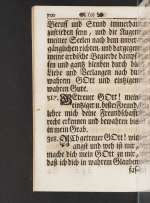 700 ❀ ) o ( ❀
Beruff und Stand immerdar
zufrieden seyn, und die Augen
meiner Seelen nach dem unver-
gänglichen richten, und dargegen
meine irrdische Begierde dämpf-
fen und gantz bleiben durch die
Liebe und Verlangen nach dir
wahren GOtt und einigem
wahren Gute.
517. Getreuer GOtt! mein
einziger u. bester Freund,
lehre mich deine Freundschafft
recht erkennen und bewahren biß
in mein Grab.
518. Ach getreuer GOtt! wie
angst und weh ist mir,
mache dich mein GOtt zu mir,
daß ich dich in wahrem Glauben